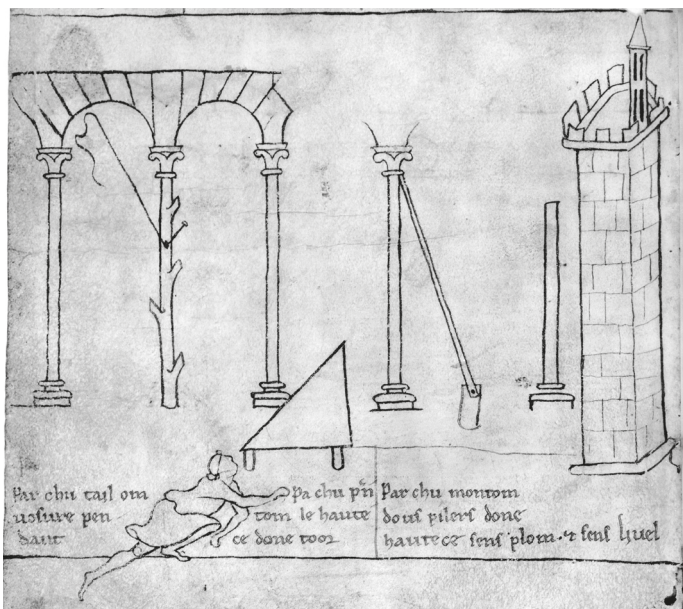 Par chu tail om
uosure pen
dant
Pa chu pñ
tom le haute
ce done toor
Par chu montom
dous pilers done
hautece sens plom · ⁊ sens liuel